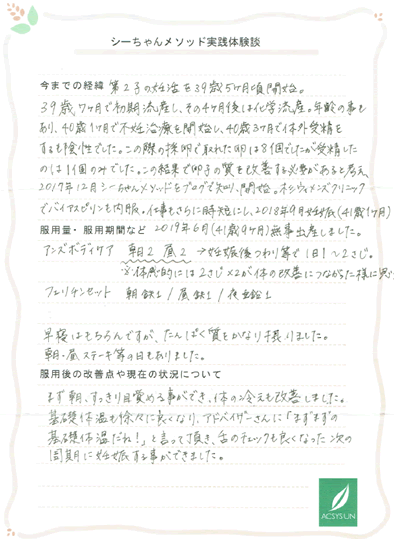 シーちゃんメソッド実践体験談
今までの経緯 第2子の妊活を39歳5ヶ月頃開始。
39歳7ヶ月で初期流産し、その4ヶ月後は化学流産。年齢の事も
あり、40歳1ヶ月で不妊治療を開始し、40歳3ヶ月で体外受精を
するも陰性でした。この際の採卵で取れた卵は8個でしたが受精した
のは1個のみでした。この結果で卵子の質を改善する必要があると考え、
2017年12月シーちゃんメソッドをブログで知り、開始。杉ウィメンズクリニック
でバイアスピリンも内服。仕事もさらに時短にし、2018年9月妊娠(41歳1ヶ月)
服用量・服用期間など 2019年6月(41歳9ヶ月)無事出産しました。
アンズボディケア 朝2 昼2 →妊娠後つわり等で1日1〜2さじ。
※体感的には2さじ×2が体の改善につながった様に思
フェリチンセット 朝鉄1/昼鉄1/夜亜鉛1
早寝はもちろんですが、たんぱく質をかなり摂りました。
朝・昼ステーキ等の日もありました。
服用後の改善点や現在の状況について
まず朝、すっきり目覚める事ができ、体の冷えも改善しました。
基礎体温も徐々に良くなり、アドバイザーさんに「まずまずの
基礎体温だね!」と言って頂き、舌のチェックも良くなった次の
周期に妊娠する事ができました。
ACSYSUN